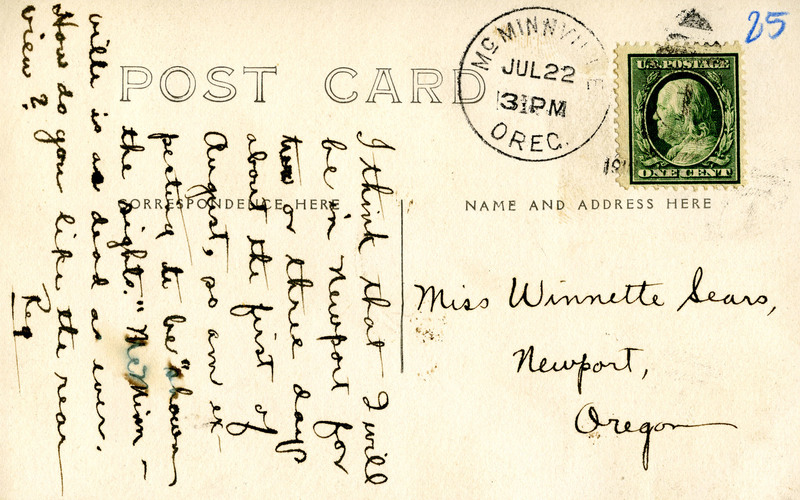 POST CARD
CORRESPONDENCE HERE
NAME AND ADDRESS HERE
25
McMINNVILLE
JUL 22
3 PM
OREG.
19
U.S. POSTAGE
ONE CENT
I think that I will
be in Newport for
two or three days
about the first of
August, so am ex-
pecting to be "shown
the sights." McMinn-
ville is as dead as ever.
How do you like the rear
view?
Reg
Miss Winnette Sears,
Newport,
Oregon